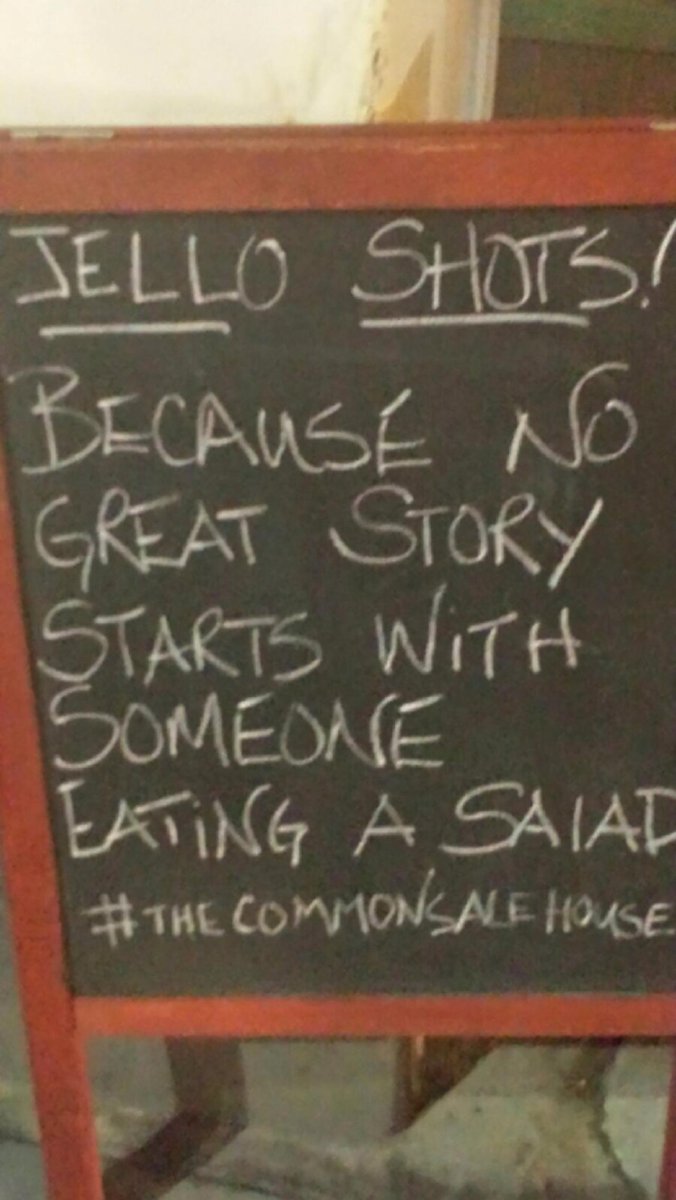 JELLO SHOTS!
BECAUSE NO
GREAT STORY
STARTS WiTH
SOMEONE
EATiNG A SALAD
#THECOMMON'SALEHOUSE